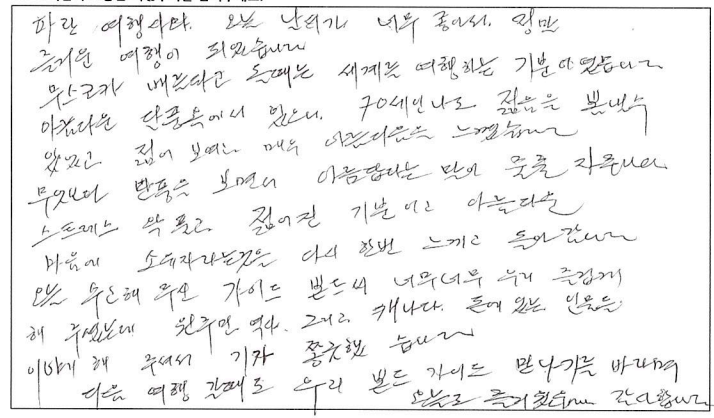 파란 여행사다. 오늘 날씨가 너무 좋아서. 정말
즐거운 여행이 되었습니다
무스코카 배를타고 돌때는 세계를 여행하는 기분이였습니다
아름다운 단풍속에서 있으니. 70세인나도 젊음을 뽐낼수
있었고 젊어 보여 매우 아름다음을 느꼈습니다
무엇보다 단풍을 보면서 아름답다는 말이
스트레스 확 풀고 젊어진 기분이고 아름다운
마음에 소유자라는것을 다시 한번 느끼고 돌아 갑니다
오늘 수고해 주신 가이드 분드서 너무너무 우리 즐겁게
해 주셨는데 역사. 그리고 캐나다. 돈에 있는 인물을
이야기 해 주셔서 기자 쫑긋했습니다
다음 여행 갈때도 우리 가이드 만나기를 바라며
오늘도 즐거웠습니다 감사합니다